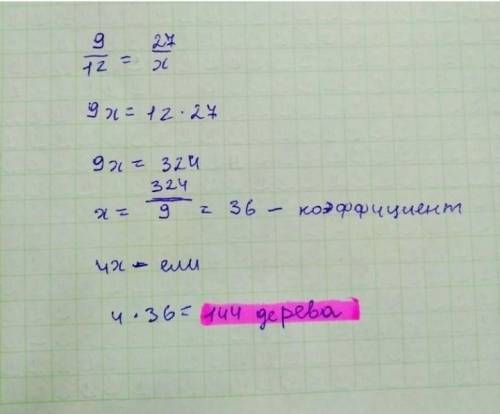 9/12 = 27/x
9x = 12 · 27
9x = 324
x = 324/9 = 36 – коэффициент
4x – ели
4 · 36 = 144 дерева